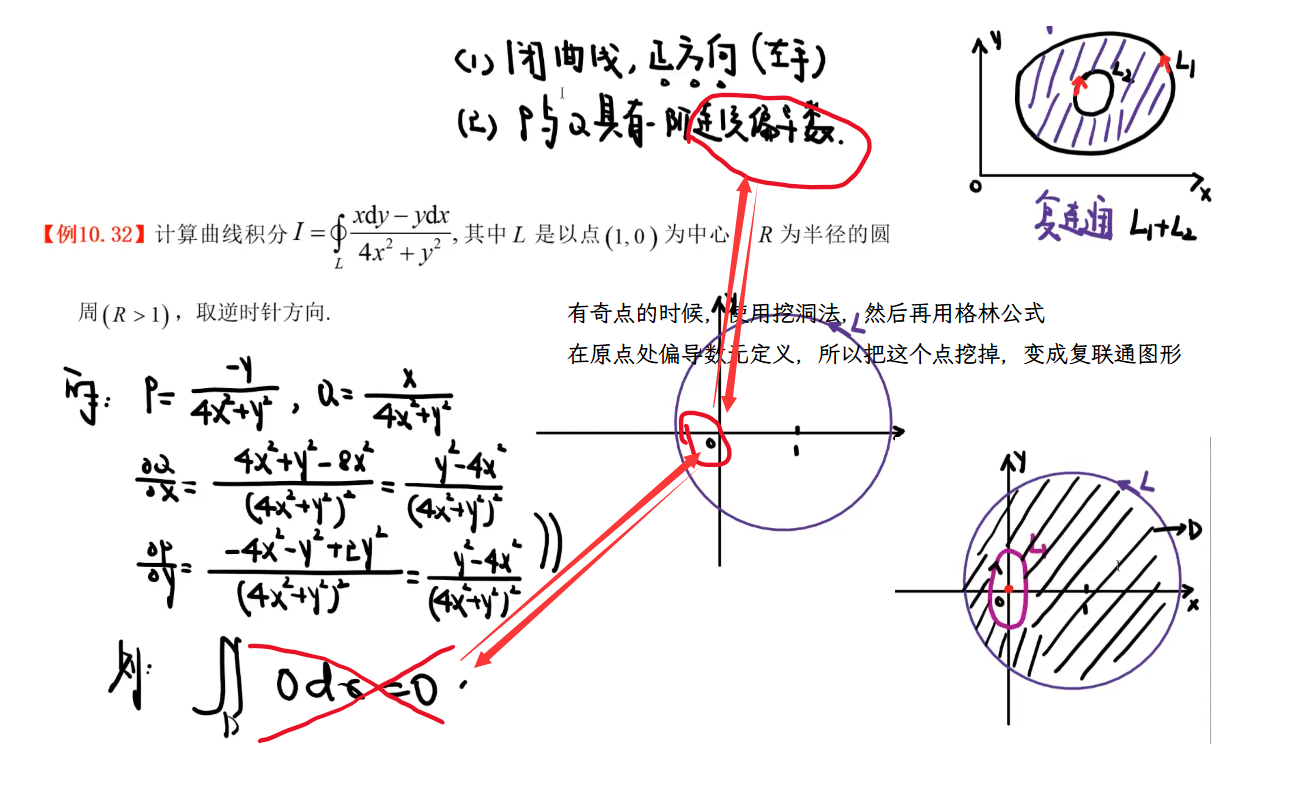 (1) 闭曲线, 正方向 (左手)
(2) P与Q具有一阶连续偏导数.
y
L₁
L₂
O
x
复连通 L₁+L₂
【例10.32】计算曲线积分 I = ∮_L (xdy − ydx)/(4x² + y²), 其中 L 是以点 (1, 0) 为中心 R 为半径的圆
周 (R > 1), 取逆时针方向.
有奇点的时候, 使用挖洞法, 然后再用格林公式
在原点处偏导数无定义, 所以把这个点挖掉, 变成复联通图形
L
O
1
解: P = −y/(4x²+y²), Q = x/(4x²+y²)
∂Q/∂x = (4x²+y²−8x²)/(4x²+y²)² = (y²−4x²)/(4x²+y²)²
∂P/∂y = (−4x²−y²+2y²)/(4x²+y²)² = (y²−4x²)/(4x²+y²)²
y
L
D
L₁
O
1
x
则: ∬_D 0dσ = 0.